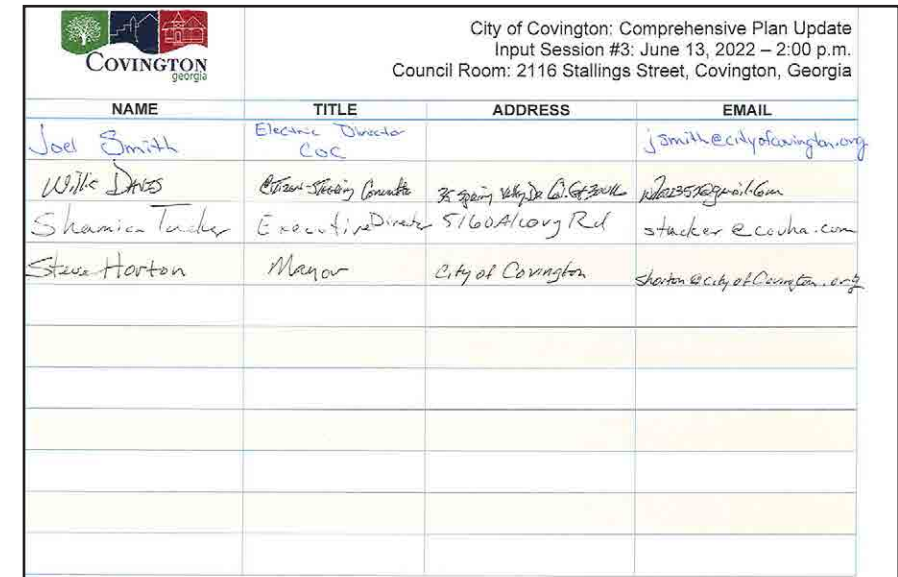 COVINGTON
georgia
City of Covington: Comprehensive Plan Update
Input Session #3: June 13, 2022 – 2:00 p.m.
Council Room: 2116 Stallings Street, Covington, Georgia
NAME TITLE ADDRESS EMAIL
Joel Smith Electric Director COC jsmith@cityofcovington.org
Willie Davis Citizen-Steering Committee 35 Spring Valley Dr
Shamica Tucker Executive Director 5160 Alcovy Rd stucker@covha.com
Steve Horton Mayor City of Covington shorton@cityofCovington.org